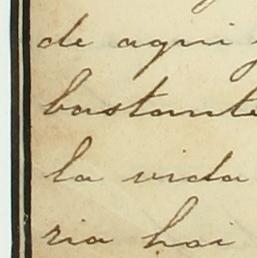 de aqui
bastante
la vida
ria hai